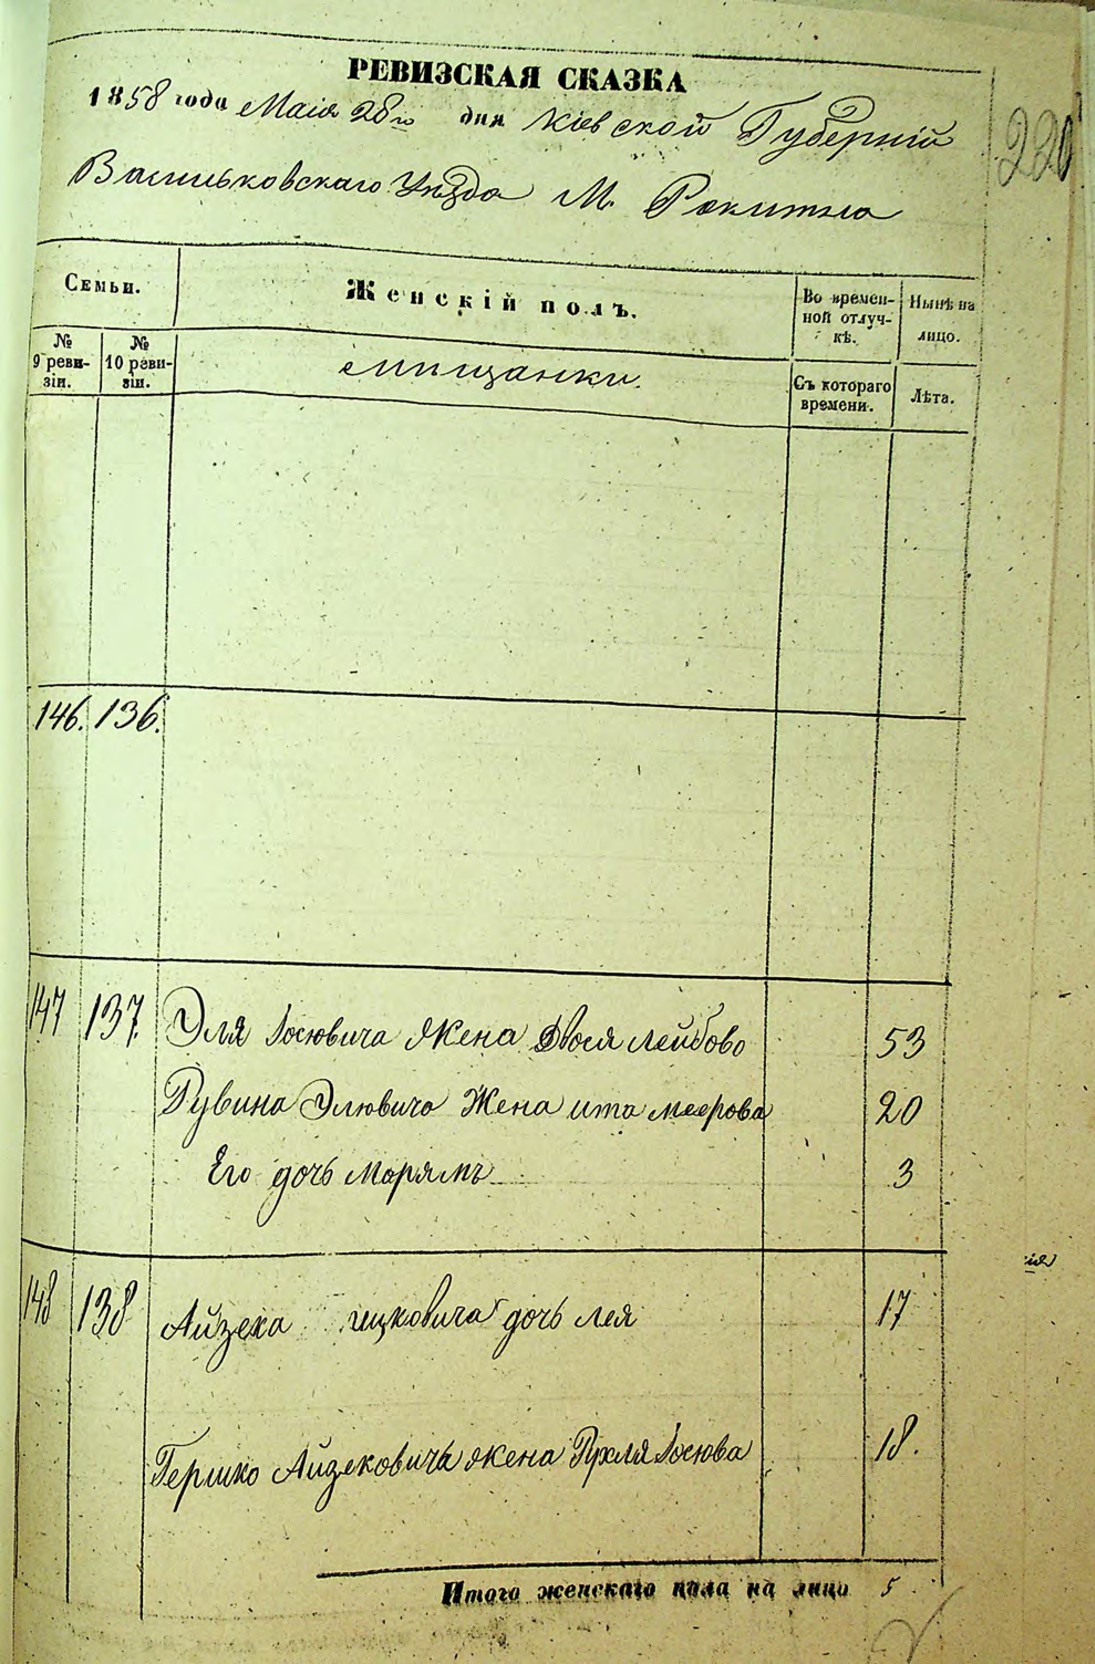 РЕВИЗСКАЯ СКАЗКА
1858 года Маія 28го дня Кіевской Губерніи
Васильковскаго Уѣзда М. Рокитна
220
Семьи.
Женскій полъ.
Во времен-
ной отлуч-
кѣ.
Нынѣ на
лицо.
№
9 реви-
зіи.
№
10 реви-
зіи.
мѣщанки.
Съ котораго
времени.
Лѣта.
146. 136.
147 137. Эля Іосювича жена Двося Лейбова 53
Рувина Элювича Жена ита меерова 20
Его дочь марямъ 3
148 138 Айзека ицковича дочь лея 17
Гершко Айзековича жена Рухля Іосюва 18.
Итого женскаго пола на лицо 5